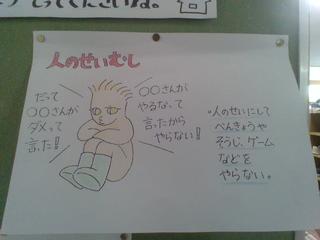 人のせいむし
だって
○○さんが
ダメって
言った!!
○○さんが
やるなって
言ったから
やらない!!
・人のせいにして
べんきょうや
そうじ、ゲーム
などを
やらない。